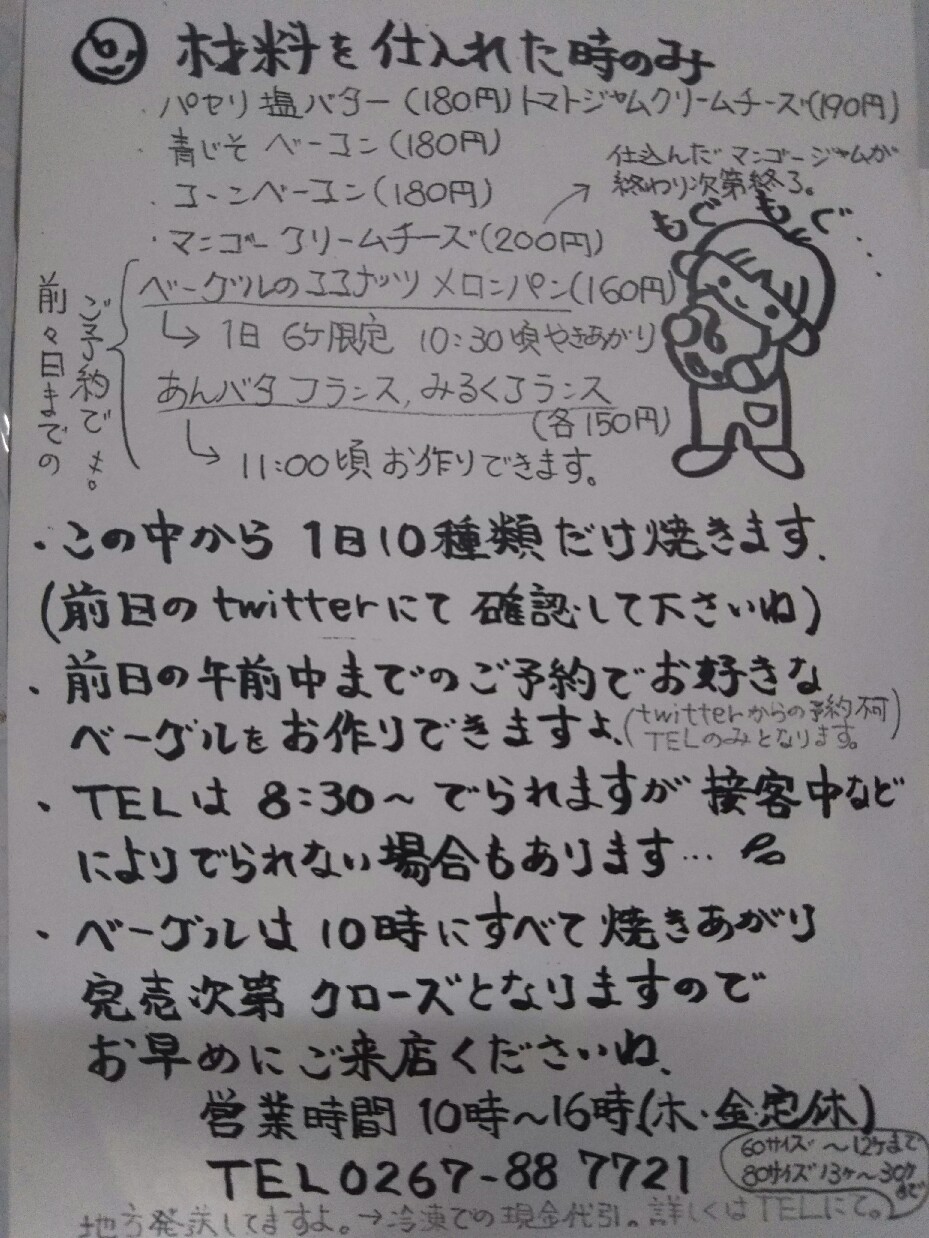 材料を仕入れた時のみ
・パセリ塩バター(180円)トマトジャムクリームチーズ(190円)
・青じそベーコン(180円)
・コーンベーコン(180円)
・マンゴークリームチーズ(200円)
仕込んだマンゴージャムが
終わり次第終了。
もぐもぐ…
前々日までの
ご予約で〆。
ベーグルのココナッツメロンパン(160円)
→1日6ケ限定 10:30頃やきあがり
あんバタフランス,みるくフランス
(各150円)
→11:00頃お作りできます。
・この中から1日10種類だけ焼きます.
(前日のtwitterにて確認して下さいね)
・前日の午前中までのご予約でお好きな
ベーグルをお作りできますよ、
(twitterからの予約不可
TELのみとなります。)
・TELは8:30〜でられますが接客中など
によりでられない場合もあります…
・ベーグルは10時にすべて焼きあがり
完売次第クローズとなりますので
お早めにご来店くださいね、
営業時間10時〜16時(木・金定休)
TEL0267-88 7721
60サイズ〜12ケまで
80サイズ13ケ〜30ケまで
地方発送してますよ。→冷凍での現金代引。詳しくはTELにて。